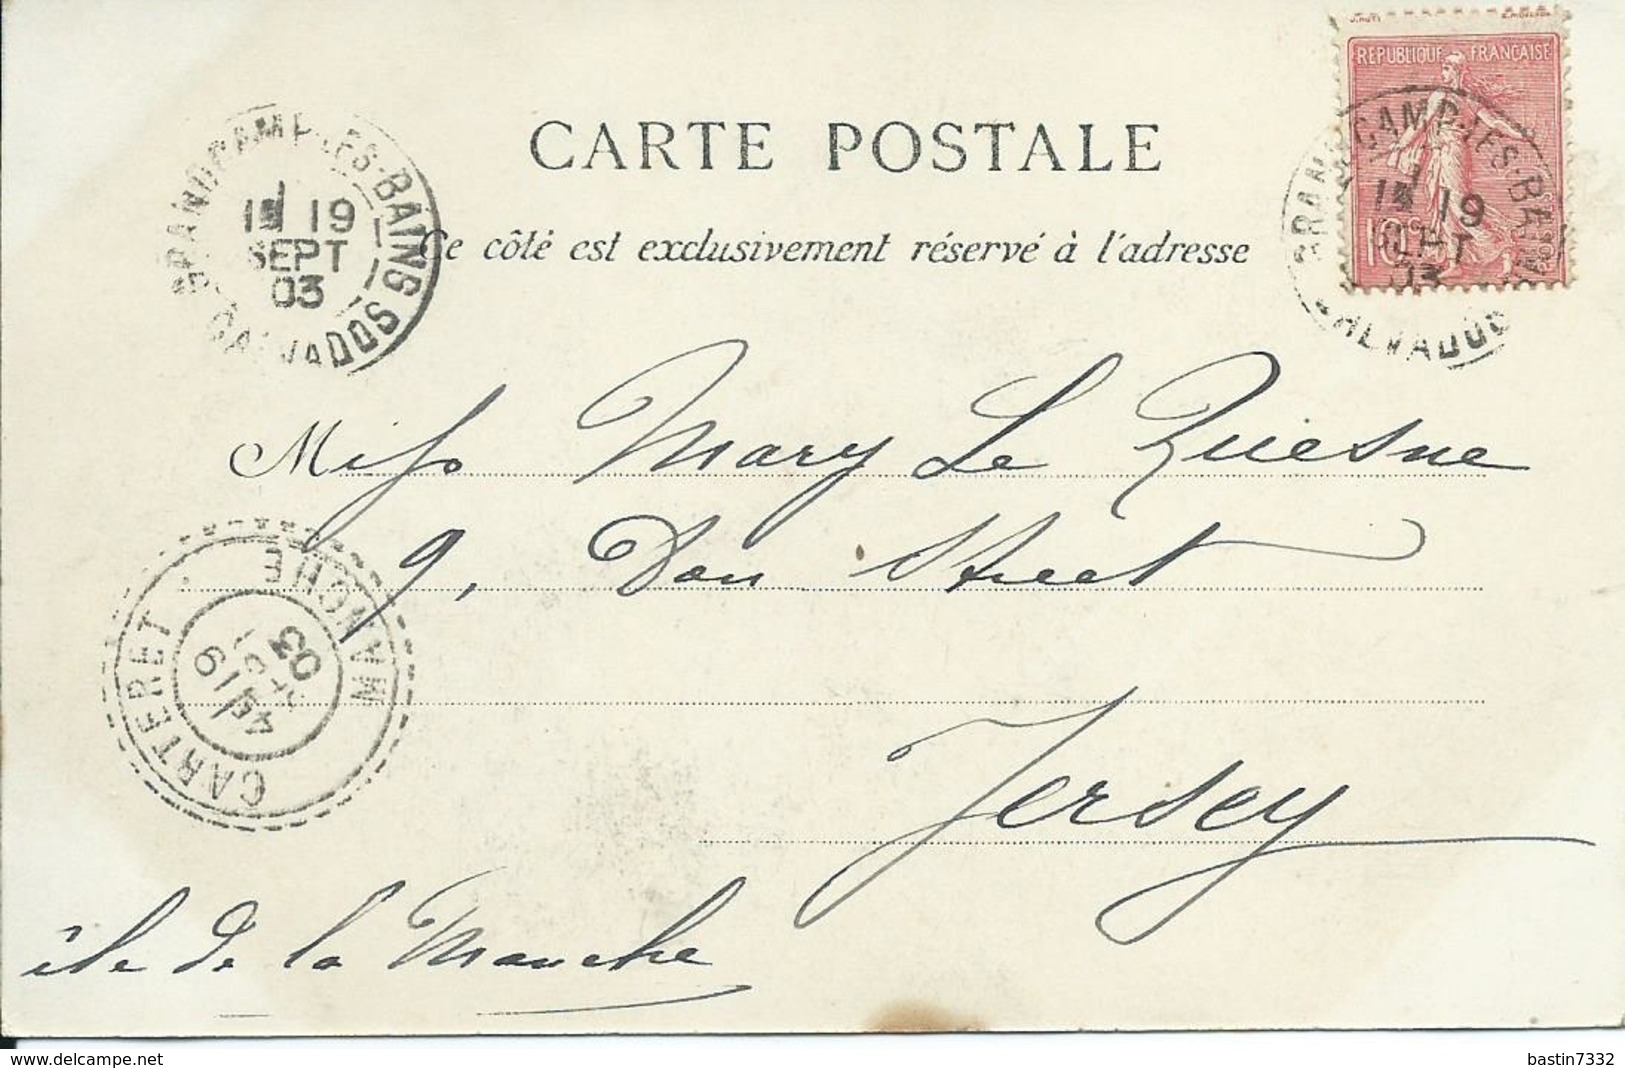 J. ROTY
REPUBLIQUE FRANÇAISE
10c
GRANDCAMP-LES-BAINS
19
SEPT
03
CALVADOS
CARTE POSTALE
Ce côté est exclusivement réservé à l'adresse
GRANDCAMP-LES-BAINS
19
SEPT
03
CALVADOS
Miss Mary Le Quesne
9, Don Street
Jersey
CARTERET
MANCHE
19
03
île de la Manche
bastin7332